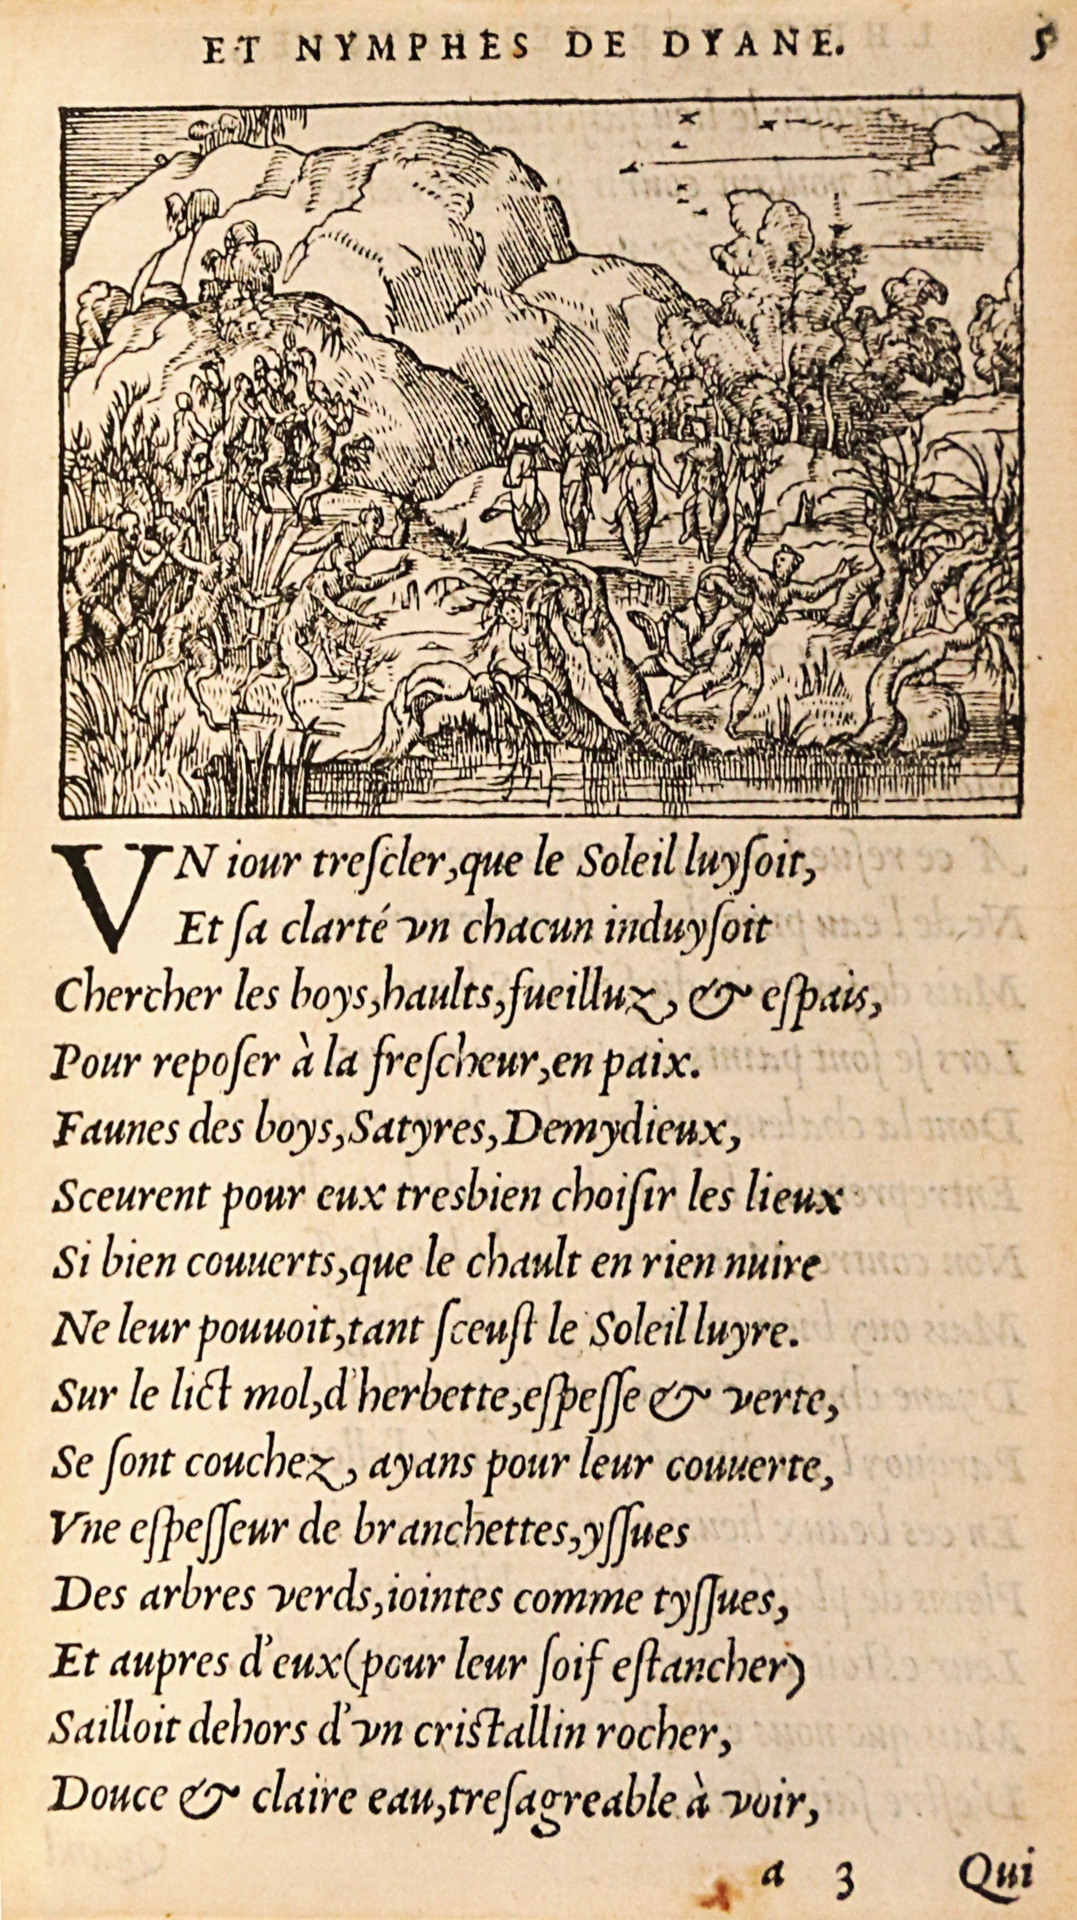 ET NYMPHES DE DYANE. 5
VN iour treſcler, que le Soleil luyſoit,
Et ſa clarté vn chacun induyſoit
Chercher les boys, haults, fueilluz, & eſpais,
Pour repoſer à la freſcheur, en paix.
Faunes des boys, Satyres, Demydieux,
Sceurent pour eux tresbien choiſir les lieux
Si bien couuerts, que le chault en rien nuire
Ne leur pouuoit, tant ſceuſt le Soleil luyre.
Sur le lict mol, d'herbette, eſpeſſe & verte,
Se ſont couchez, ayans pour leur couuerte,
Vne eſpeſſeur de branchettes, yſſues
Des arbres verds, iointes comme tyſſues,
Et aupres d'eux (pour leur ſoif eſtancher)
Sailloit dehors d'vn criſtallin rocher,
Douce & claire eau, treſagreable à voir,
a 3 Qui